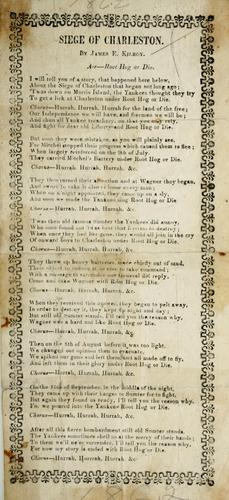 SIEGE OF CHARLESTON.
BY JAMES F. KILROY.
AIR—Root Hog or Die.
I will tell you of a story, that happened here below,
About the Siege of Charleston that began not long ago;
'Twas down on Morris Island, the Yankees thought they try
To get a lick at Charleston under Root Hog or Die.
Chorus—Hurrah, Hurrah, Hurrah for the land of the free;
Our Independence we will have, and freemen we will be;
And shun all Yankee treachery, on that you may rely,
And fight for dear old Liberty and Root Hog or Die.
But soon they were mistaken, as you will plainly see,
For Mitchel stopped their progress which caused them to flee;
When largely reinforced on the 9th of July,
They carried Mitchel's Battery under Root Hog or Die.
Chorus—Hurrah, Hurrah, Hurrah, &c.
They then turned their attention and at Wagner they began,
And swore to take it
When night approached, they came up on a sly,
And soon we made the Yankees sing Root Hog or Die.
Chorus—Hurrah, Hurrah, Hurrah, &c.
'Twas then old famous Sumter the Yankees did annoy,
When once they lost her guns, they would all join in the cry
Of onward boys to Charleston under Root Hog or Die.
Chorus—Hurrah, Hurrah, Hurrah, &c.
They threw up heavy batteries made chiefly out of sand,
With a message to surrender our General did reply,
Come and take Wagner with Root Hog or Die.
Chorus—Hurrah, Hurrah, Hurrah, &c.
When they received this answer, they began to pelt away,
In order to destroy it, they kept up night and day;
But still old Sumter stands, I'll tell you the reason why,
Wagner was a hard and Root Hog or Die.
Chorus—Hurrah, Hurrah, Hurrah, &c.
Then on the 6th of August before it was too light,
We changed our opinion then to evacuate,
We spiked our guns and left them all made off to fly,
And left them in their glory under Root Hog or Die.
Chorus—Hurrah, Hurrah, Hurrah, &c.
On the 10th of September, in the middle of the night,
They came up with their barges to Sumter for to fight,
But again they found us ready, I'll tell you the reason why,
For we poured into the Yankees Root Hog or Die.
Chorus—Hurrah, Hurrah, Hurrah, &c.
After all this fierce bombardment still old Sumter stands,
The Yankees sometimes shell us at the mercy of their hands;
But take we'll ne'er surrender, I'll tell you the reason why,
For now my story is ended with Root Hog or Die.
Chorus—Hurrah, Hurrah, Hurrah, &c.